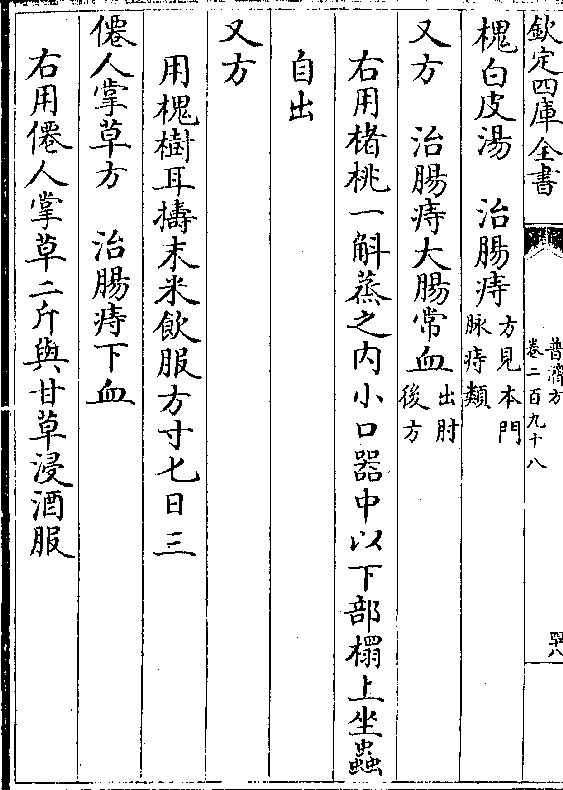 欽定四庫全書
普濟方
卷二百九十八
四八
槐白皮湯　治腸痔方見本門
脉痔類
又方　治腸痔大腸常血出肘
後方
右用楮桃一斛蒸之内小口器中以下部榻上坐蟲
自出
又方
用槐樹耳擣末米飲服方寸七日三
僊人掌草方　治腸痔下血
右用僊人掌草二斤與甘草浸酒服